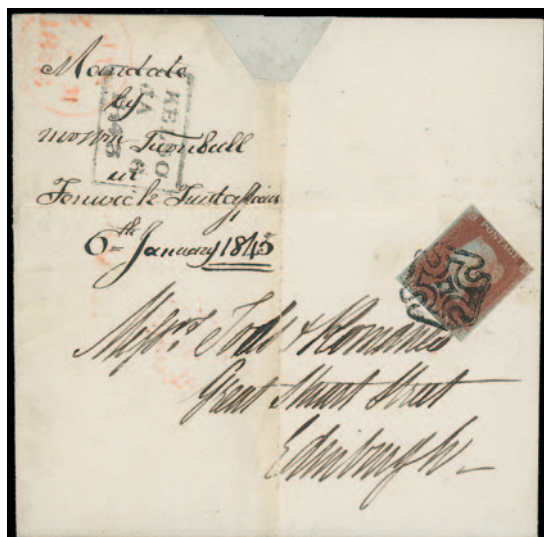 Mandate
by
Turnbull
in
Fenwick
6th January 1843
KELSO
JA 6
1843
POSTAGE
Messrs Tods & Romanes
Great Stuart Street
Edinburgh